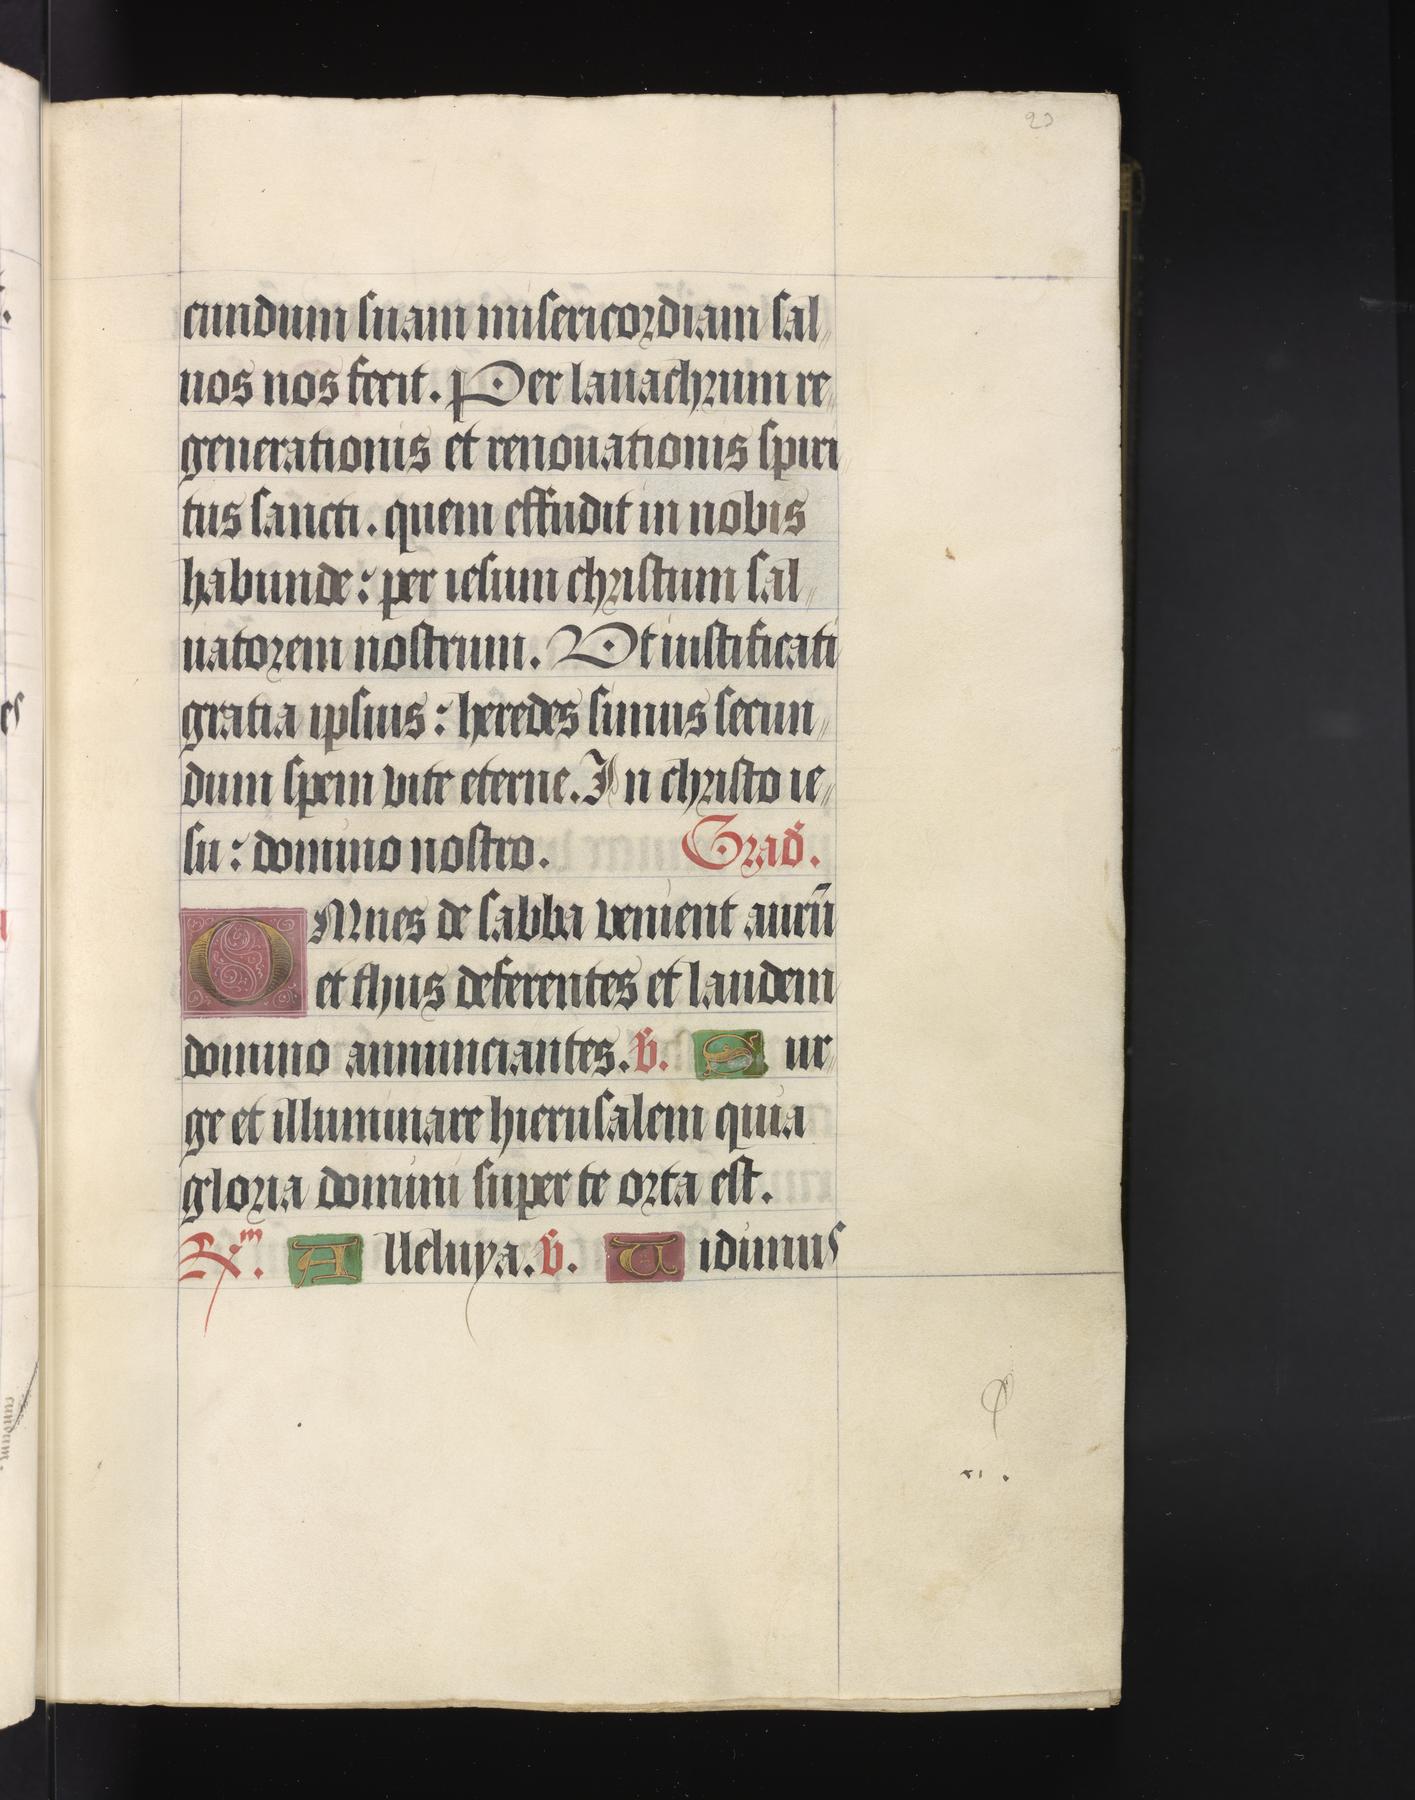 23
cundum suam misericordiam sal
uos nos fecit. Per lauachrum re
generationis et renouationis spiri
tus sancti. quem effudit in nobis
habunde: per iesum christum sal
uatorem nostrum. Vt iustificati
gratia ipsius: heredes simus secun
dum spem vite eterne. In christo ie
su: domino nostro. Grad̄.
OMnes de sabba venient aurū
et thus deferentes et laudem
domino annunciantes. ℣. Sur
ge et illuminare hierusalem quia
gloria domini super te orta est.
Alleluya. ℣. Uidimus